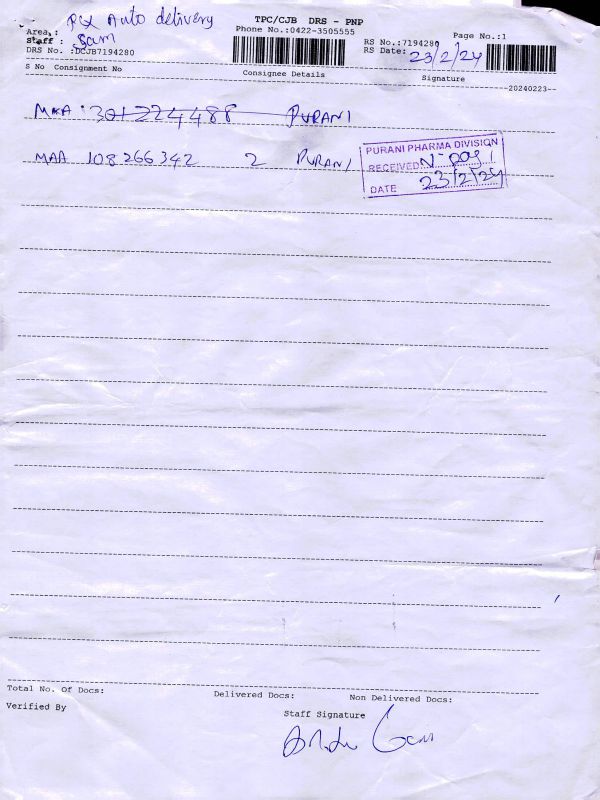 Auto delivery
TPC/CJB DRS - PNP
Area :
Phone No.:0422-3505555
Page No.:1
Staff : Sam
RS No.:7194280
DRS No. :DCJB7194280
RS Date: 23/2/24
S No Consignment No
Consignee Details
Signature
--20240223--
MKA : 301224488 PURANI
MAA 108266342 2 PURANI
PURANI PHARMA DIVISION
RECEIVED
DATE 23/2/24
Total No. Of Docs:
Delivered Docs:
Non Delivered Docs:
Verified By
Staff Signature